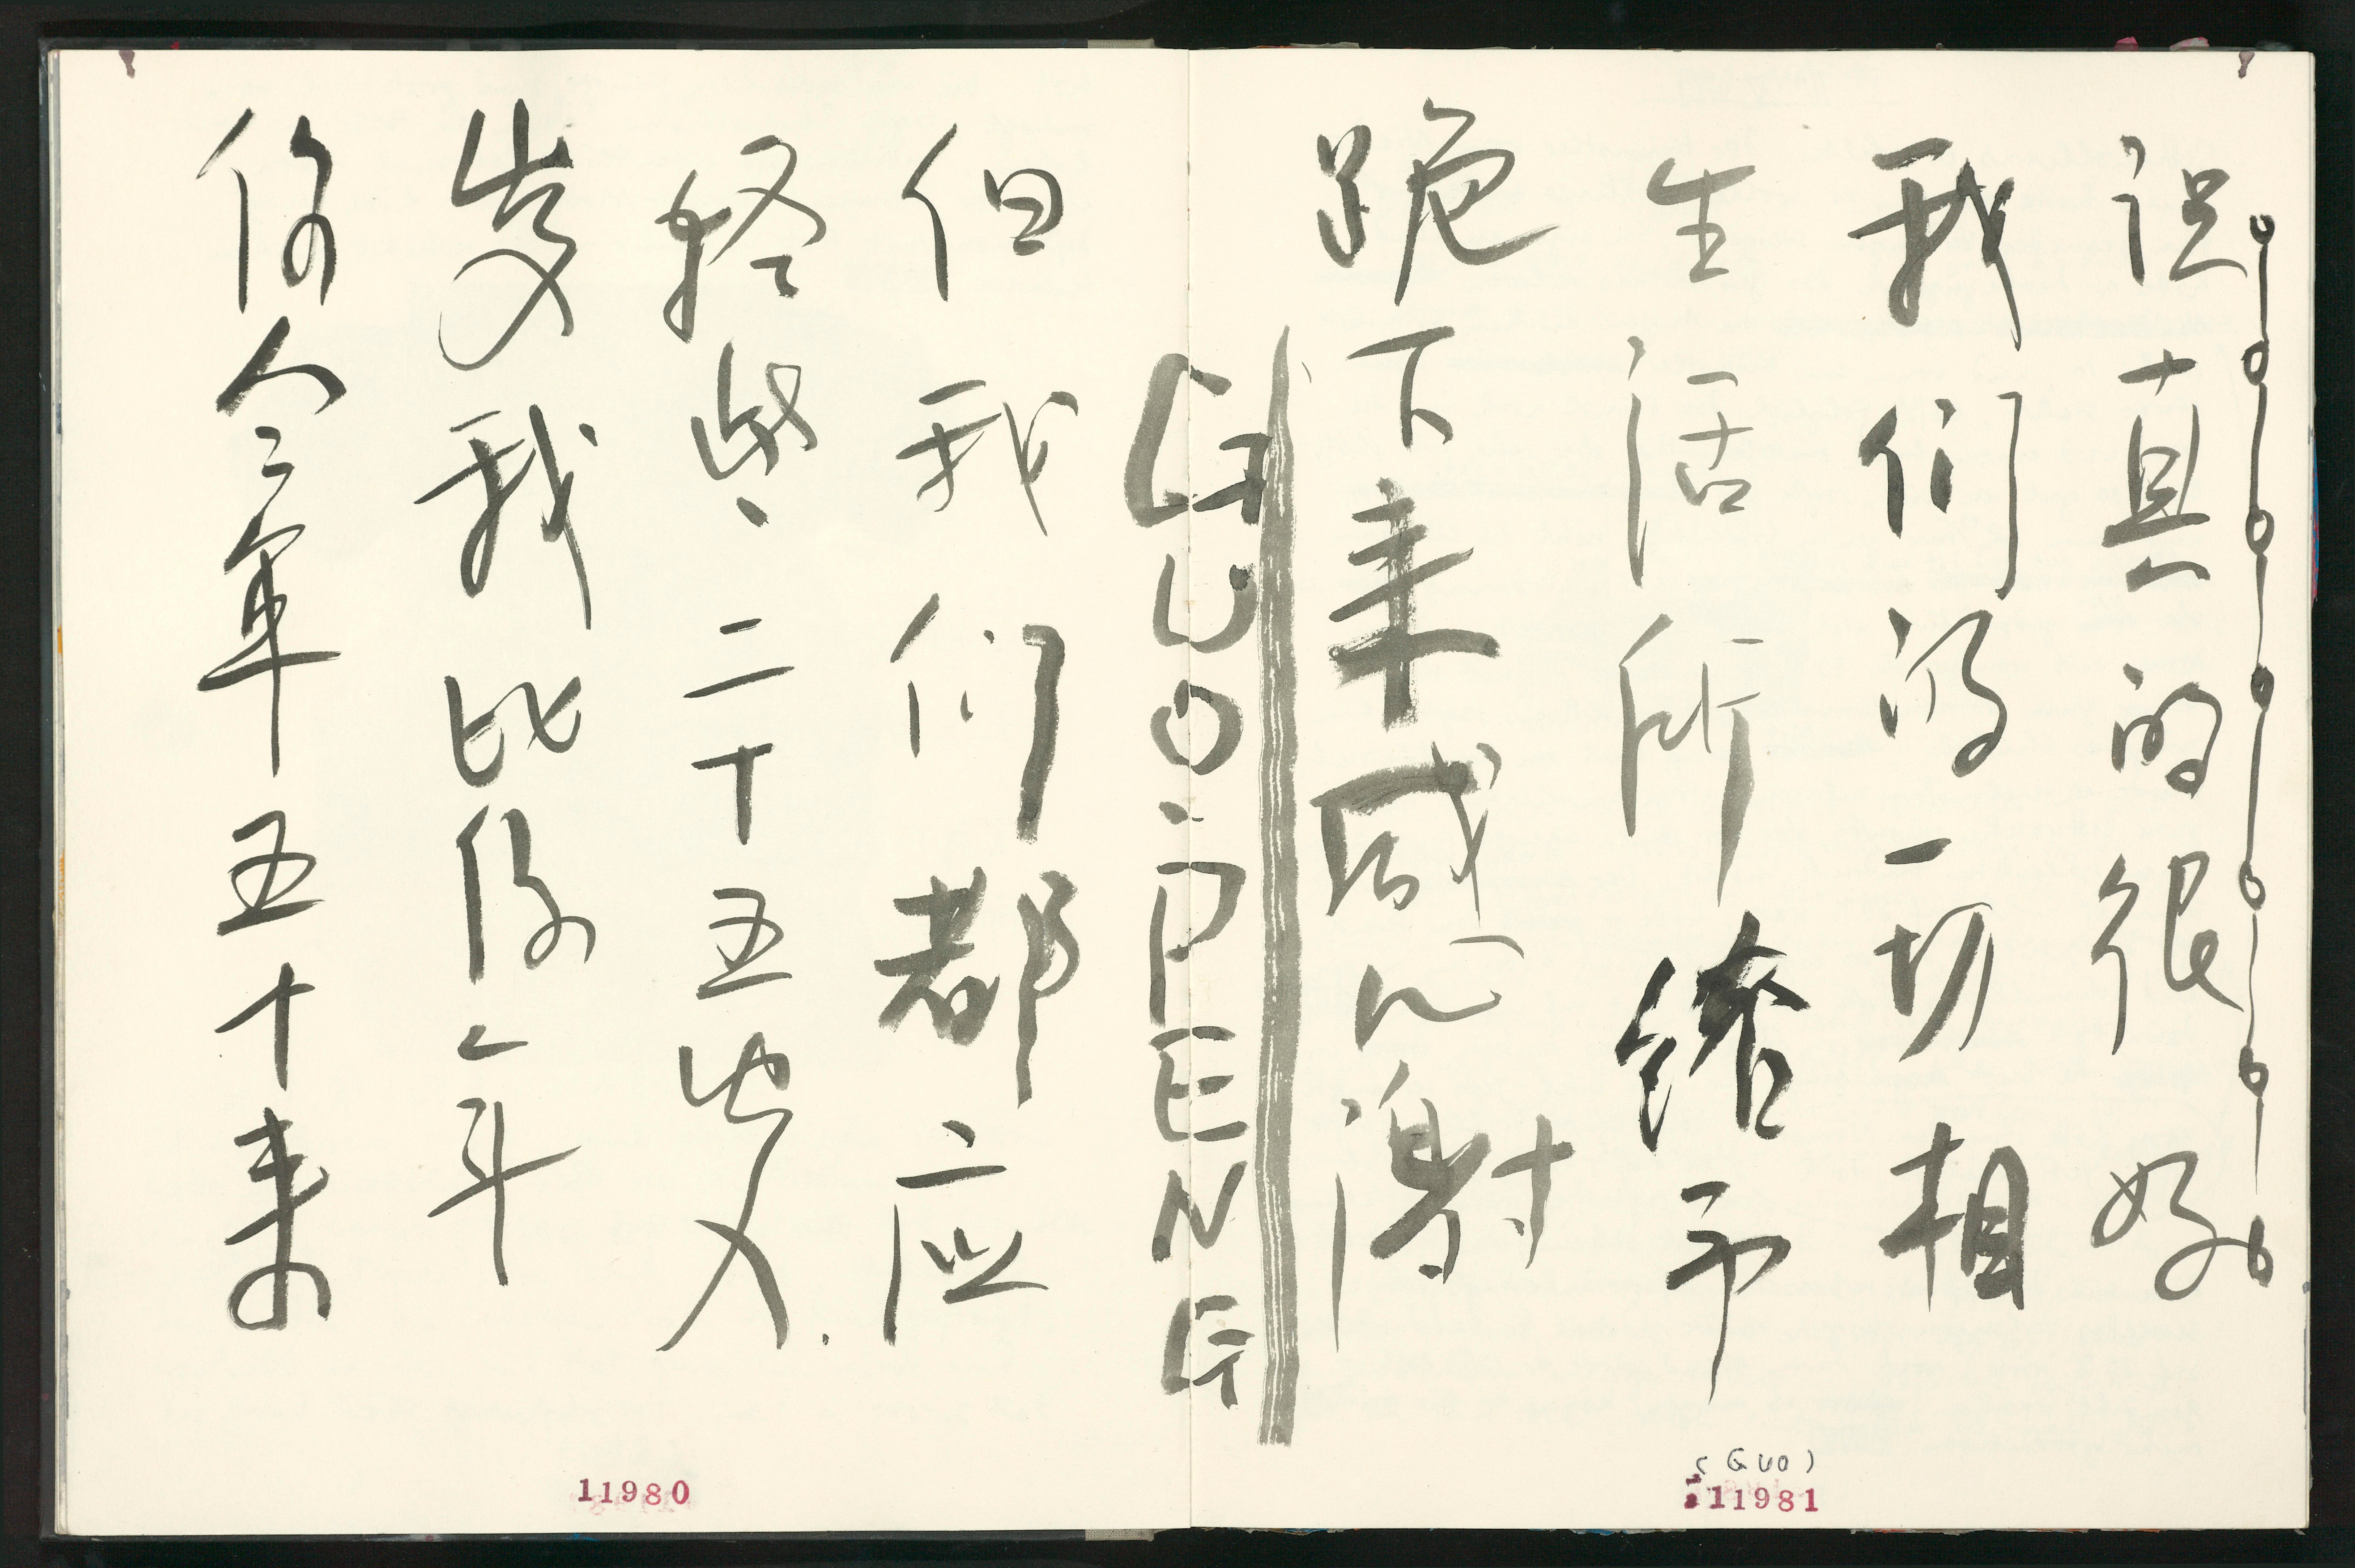 你今年五十来
岁我比你年
轻些二十五岁
但我们都应
GUO.PENG
跪下来感谢
生活所给予
我们的一切相
识真的很好
11980
(GUO)
11981